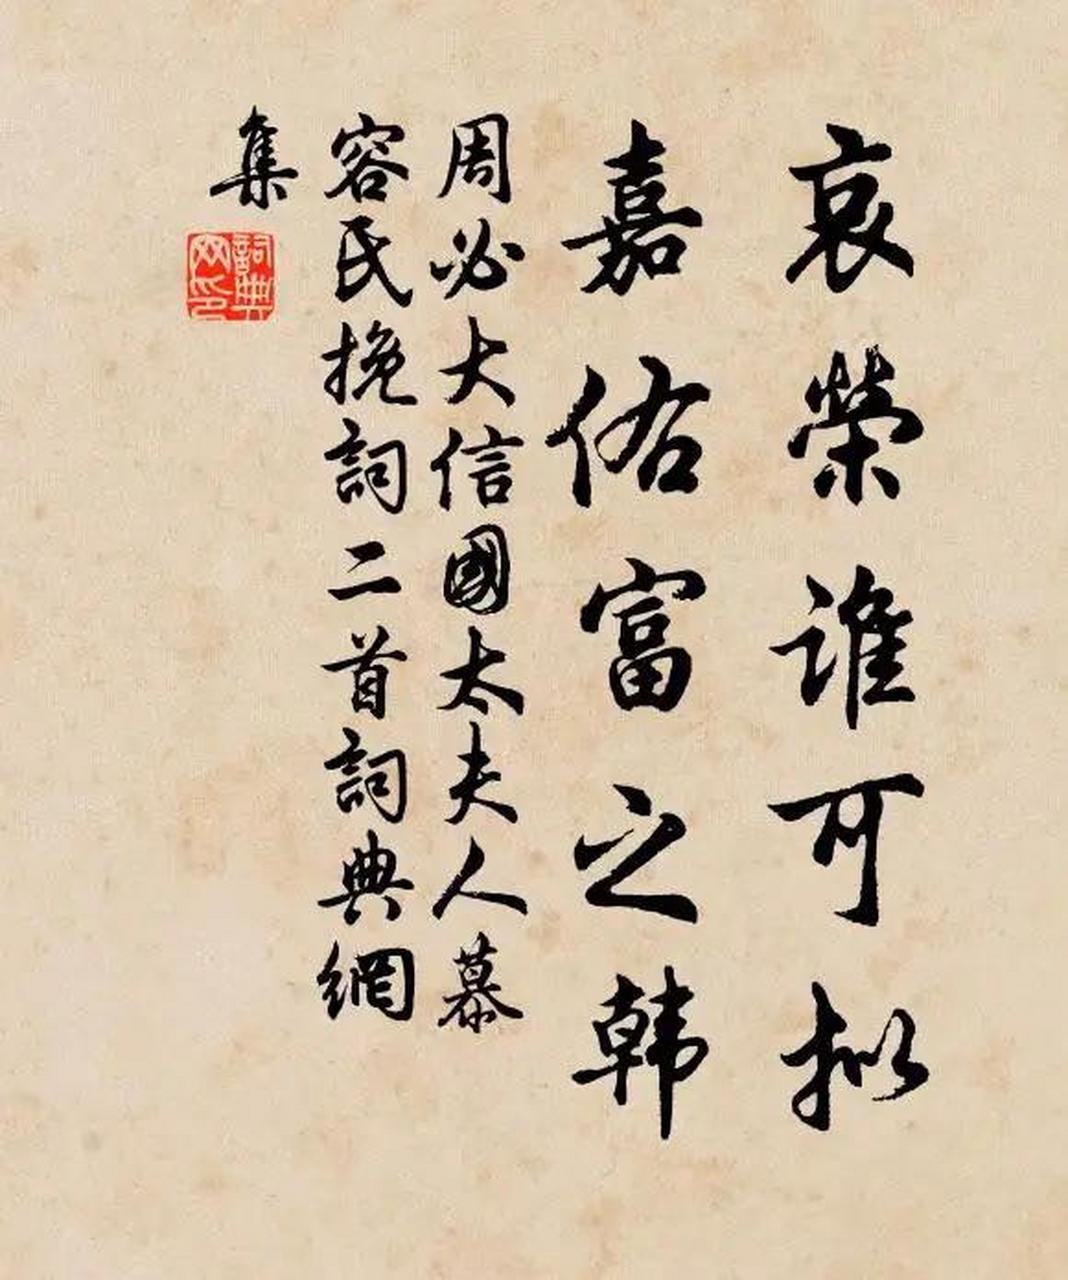 哀榮谁可拟
嘉佑富之韩
周必大信國太夫人慕
容氏挽詞二首詞典網
集
詞典
网印